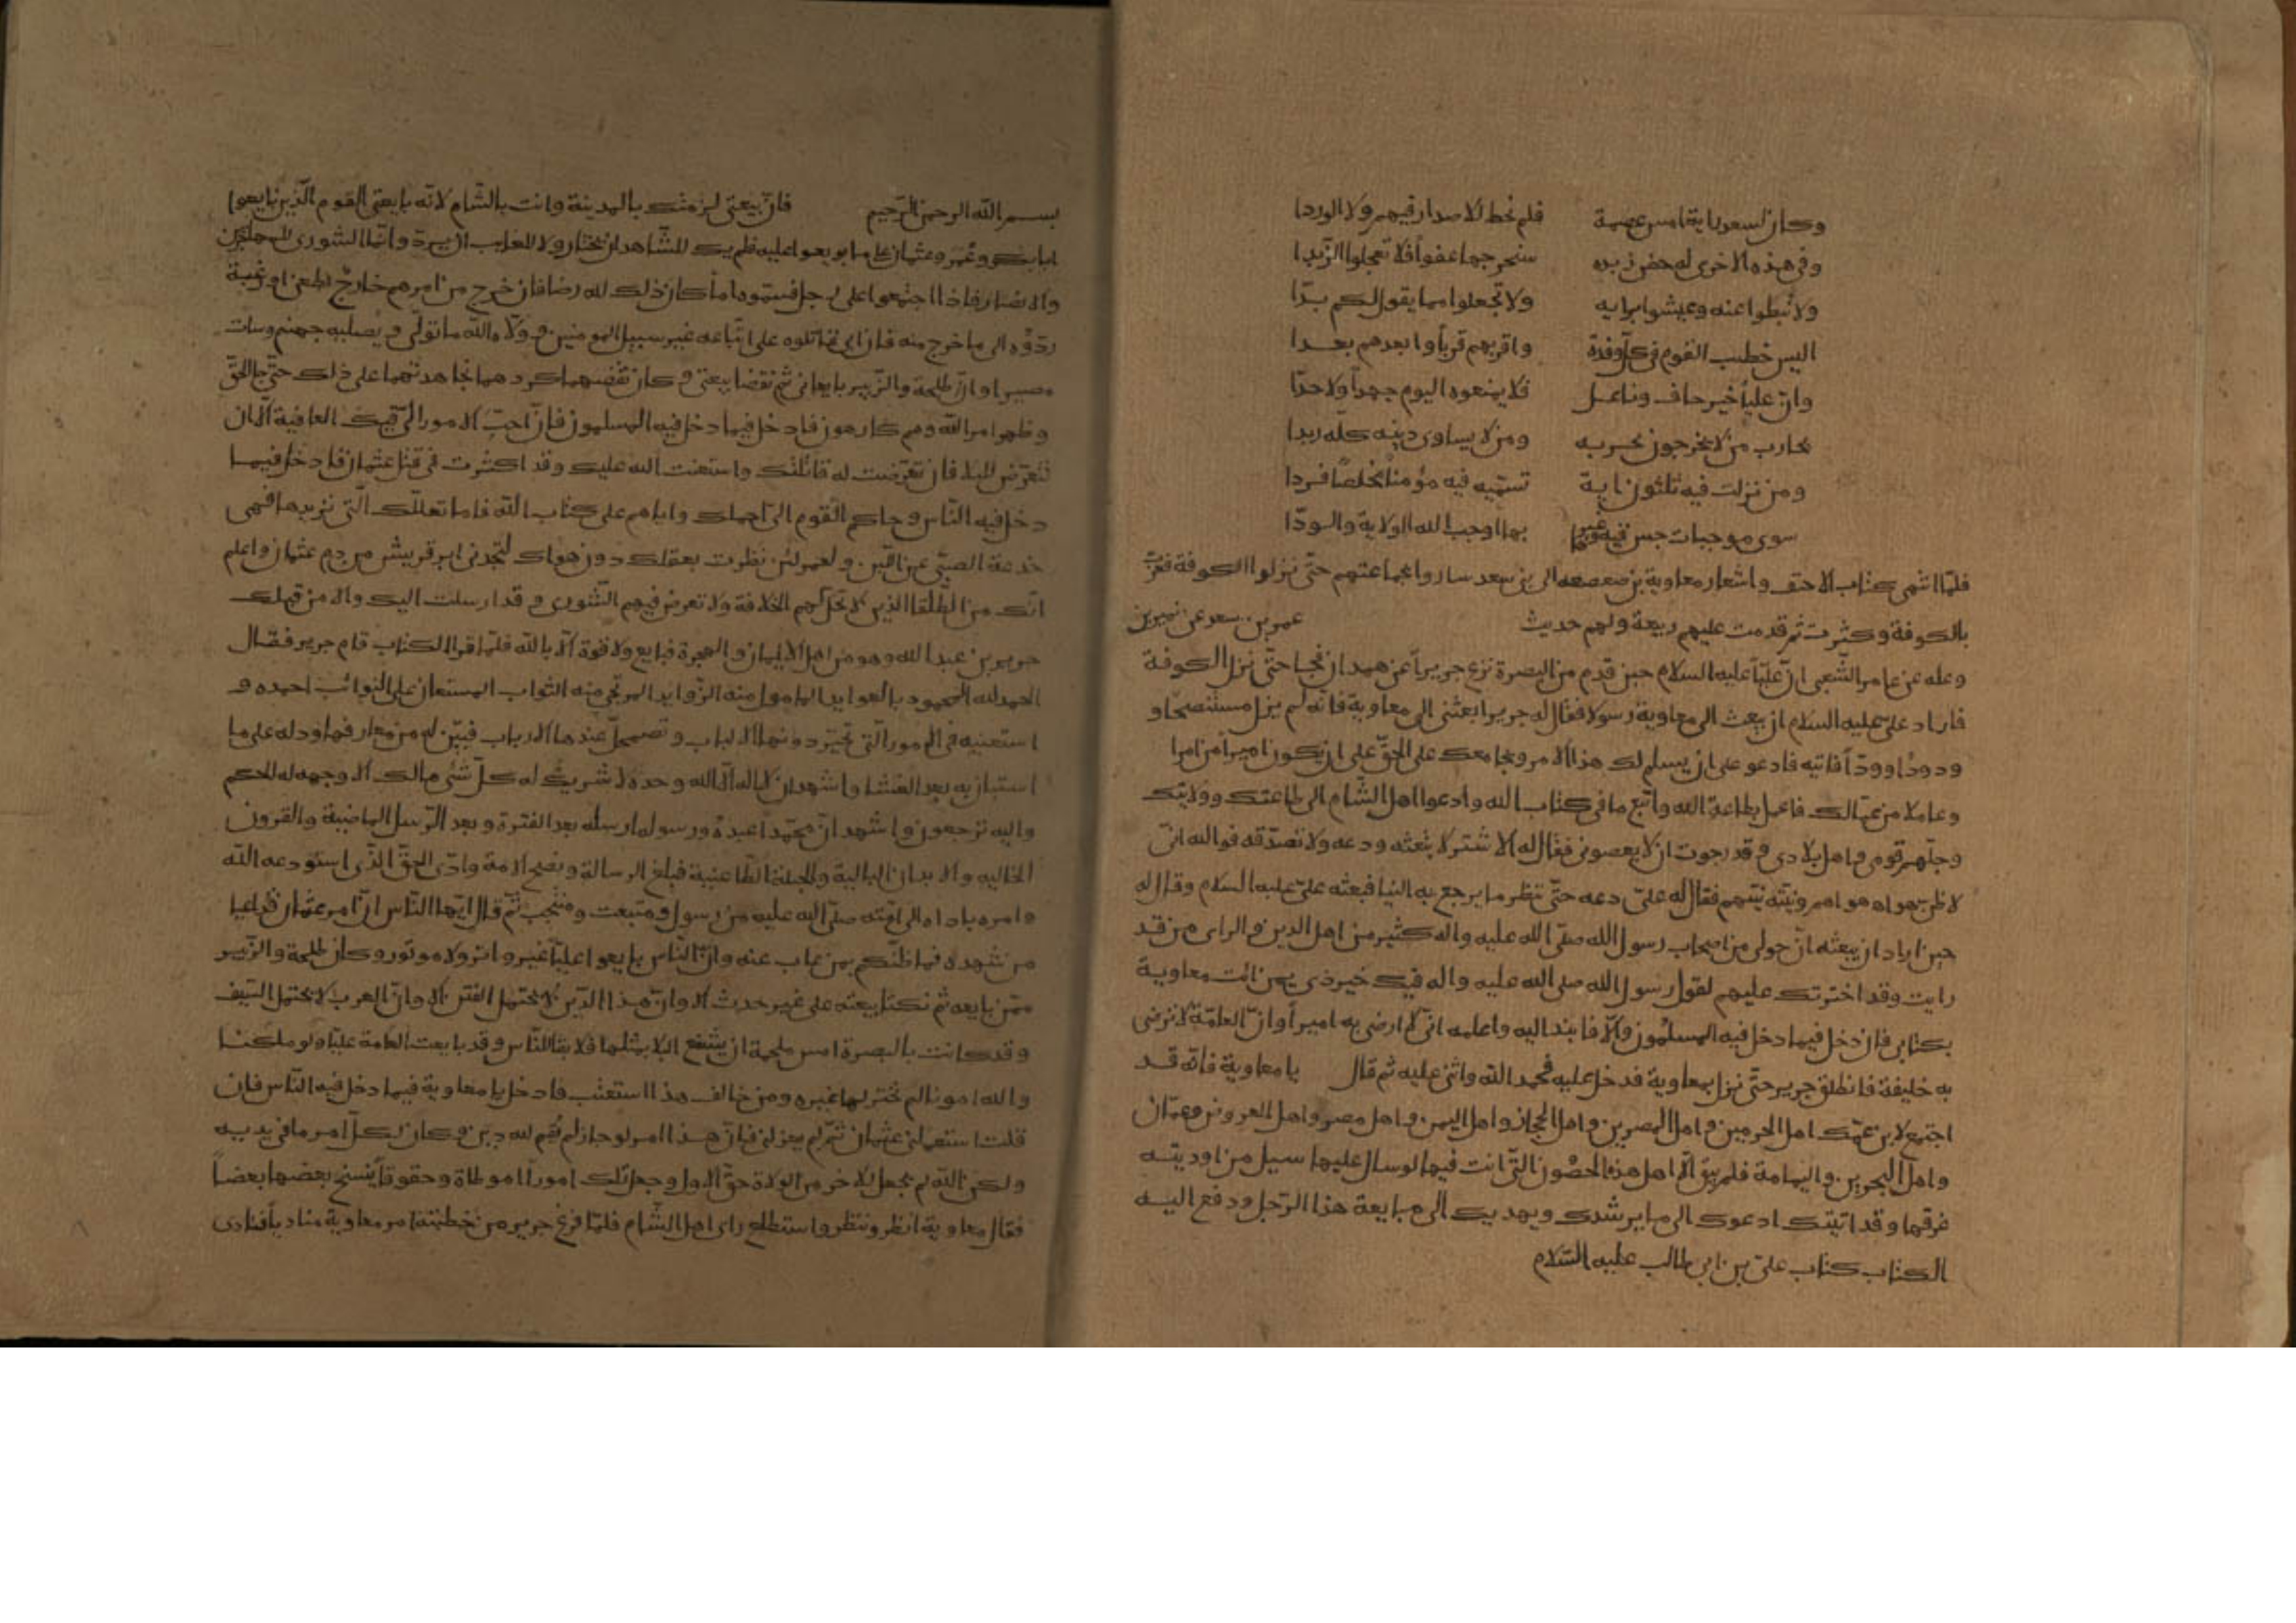 وكان لسعد راية امس عصمة فلم نخط لا صدار فيهم ولا الوردا
وفي هذه الاخرى له مخض زبده سنخرجها عفوا فلا تعجلوا الزبدا
ولا تبطوا عنه وعيشوا برايه ولا تجعلوا مما يقول لكم بدا
اليس خطيب القوم في كل وفدة واقربهم قربا وابعدهم بعدا
وان عليا خير حاف وناعل فلا يمنعوه اليوم جهدا ولا حدا
يحارب من لا يحرجون بحربه ومن لا يساوى دينه كله ردا
ومن نزلت فيه ثلثون اية تسميه فيه مؤمنا مخلصا فردا
سوى موجبات جئن فيه وغيرها بها اوجب الله الولاية والودا
فلما انتهى كتاب الاحنف واشعار معاوية بن صعصعه الى بني سعد ساروا بجماعتهم حتى نزلوا الكوفة فعزت
بالكوفة وكثرت ثم قدمت عليهم ربيعة ولهم حديث عمر بن سعد عن نمير بن
وعله عن عامر الشعبي ان عليا عليه السلام حين قدم من البصرة نزع جريرا عن همدان فجا حتى نزل الكوفة
فاراد علي عليه السلام ان يبعث الى معاوية رسولا فقال له جرير ابعثني الى معاوية فانه لم يزل مستنصحا و
ودودا وودا فاتيه فادعو على ان يسلم لك هذا الامر ويجامعك على الحق على ان يكون اميرا من امرا
وعاملا من عمالك فاعمل بطاعة الله واتبع ما في كتاب الله وادعوا اهل الشام الى طاعتك وولايتك
وجلهم قومى و اهل بلادى و قد رجوت ان لا يعصوني فقال له الاشتر لا تبعثه ودعه ولا تصدقه فوالله اني
لاظن هواه هواهم ونيته نيتهم فقال له علي دعه حتى ننظر ما يرجع به الينا فبعثه علي عليه السلام وقال له
حين اراد ان يبعثه ان حولى من اصحاب رسول الله صلى الله عليه واله كثير من اهل الدين و الراى من قد
رايت وقد اخترتك عليهم لقول رسول الله صلى الله عليه واله فيك خير ذي يمن ائت معاوية
بكتابي فان دخل فيما دخل فيه المسلمون والا فانبذ اليه واعلمه اني لا ارضى به اميرا وان العامة لا ترضى
به خليفة فانطلق جرير حتى نزل بمعاوية فدخل عليه فحمد الله واثنى عليه ثم قال يا معاوية فانه قد
اجتمع لابن عمك اهل الحرمين و اهل المصرين و اهل الحجاز واهل اليمن و اهل مصر واهل العروض وعمان
واهل البحرين واليمامة فلم يبق الا اهل هذه الحصون التي انت فيها لو سال عليها سيل من اوديته
غرقها وقد اتيتك ادعوك الى ما يرشدك ويهديك الى مبايعة هذا الرجل ودفع اليه
الكتاب كتاب علي بن ابي طالب عليه السلام
بسم الله الرحمن الرحيم فان بيعتي لزمتك بالمدينة وانت بالشام لانه بايعني القوم الذين بايعوا
ابا بكر وعمر وعثمان على ما بويعوا عليه فلم يك للشاهد ان يختار ولا للغايب ان يرد وانما الشورى للمهاجرين
والانصار فاذا اجتمعوا على رجل فسموه اماما كان ذلك لله رضا فان خرج من امرهم خارج بطعن او رغبة
ردوه الى ما خرج منه فان ابى قاتلوه على اتباعه غير سبيل المومنين و ولاه الله ما تولى و يصليه جهنم وسات
مصيرا وان طلحة والزبير بايعاني ثم نقضا بيعتي و كان نقضهما كردهما فجاهدتهما على ذلك حتى جا الحق
وظهر امر الله وهم كارهون فادخل فيما دخل فيه المسلمون فان احب الامور الي فيك العافية الا ان
تتعرض للبلا فان تعرضت له قاتلتك واستعنت الله عليك وقد اكثرت في قتل عثمان فادخل فيما
دخل فيه الناس و حاكم القوم الي احملك واياهم على كتاب الله فاما تعلك التي تريدها فهى
خدعة الصبي عن اللبن و لعمري لئن نظرت بعقلك دون هواك لتجدني ابر قريش من دم عثمان واعلم
انك من الطلقا الذين لا تحل لهم الخلافة ولا تعرض فيهم الشورى و قد ارسلت اليك والا من قبلك
جرير بن عبد الله وهو من اهل الايمان و الهجرة فبايع ولا قوة الا بالله فلما قرا الكتاب قام جرير فقال
الحمد لله المحمود بالعوايد المامول منه الزوايد المرتجى منه الثواب المستعان على النوائب احمده و
استعينه في الامور التي تحير دونها الالباب و تضمحل عندها الارباب
واشهد ان لا اله الا الله وحده لا شريك له كل شئ هالك الا وجهه له الحكم
واليه ترجعون واشهد ان محمدا عبده ورسوله ارسله بعد الفترة و بعد الرسل الماضية والقرون
الخاليه والابدان البالية والجبلة الطاغية فبلغ الرسالة و نصح الامة وادى الحق الذي استودعه الله
وامره باداه الى امته صلى الله عليه من رسول و متبعث و منتجب ثم قال ايها الناس ان امر عثمان قد اعيا
من شهده فما ظنكم بمن غاب عنه وان الناس بايعوا عليا غير واتر ولا موتور وكان طلحة والزبير
ممن بايعه ثم نكثا بيعته على غير حدث الا وان هذا الدين لا يحتمل الفتن الا وان العرب لا يحتمل السيف
وقد كانت بالبصرة امس ملحمة ان يشفع البلا بمثلها فلا بقا للناس وقد بايعت العامة عليا ولو ملكنا
والله امورنا لم نختر لها غيره ومن خالف هذا استعتب فادخل يا معاوية فيما دخل فيه الناس فان
قلت استعملني عثمان ثم لم يعزلني فان هذا امر لو جاز لم يقم لله دين و كان لكل امر ما في يديه
ولكن الله لم يجعل للاخر من الولاة حق الاول وجعل تلك امورا موطاة وحقوقا ينسخ بعضها بعضا
فقال معاوية انظر وننظر واستطلع راى اهل الشام فلما فرغ جرير من خطبته امر معاوية مناديا فنادى